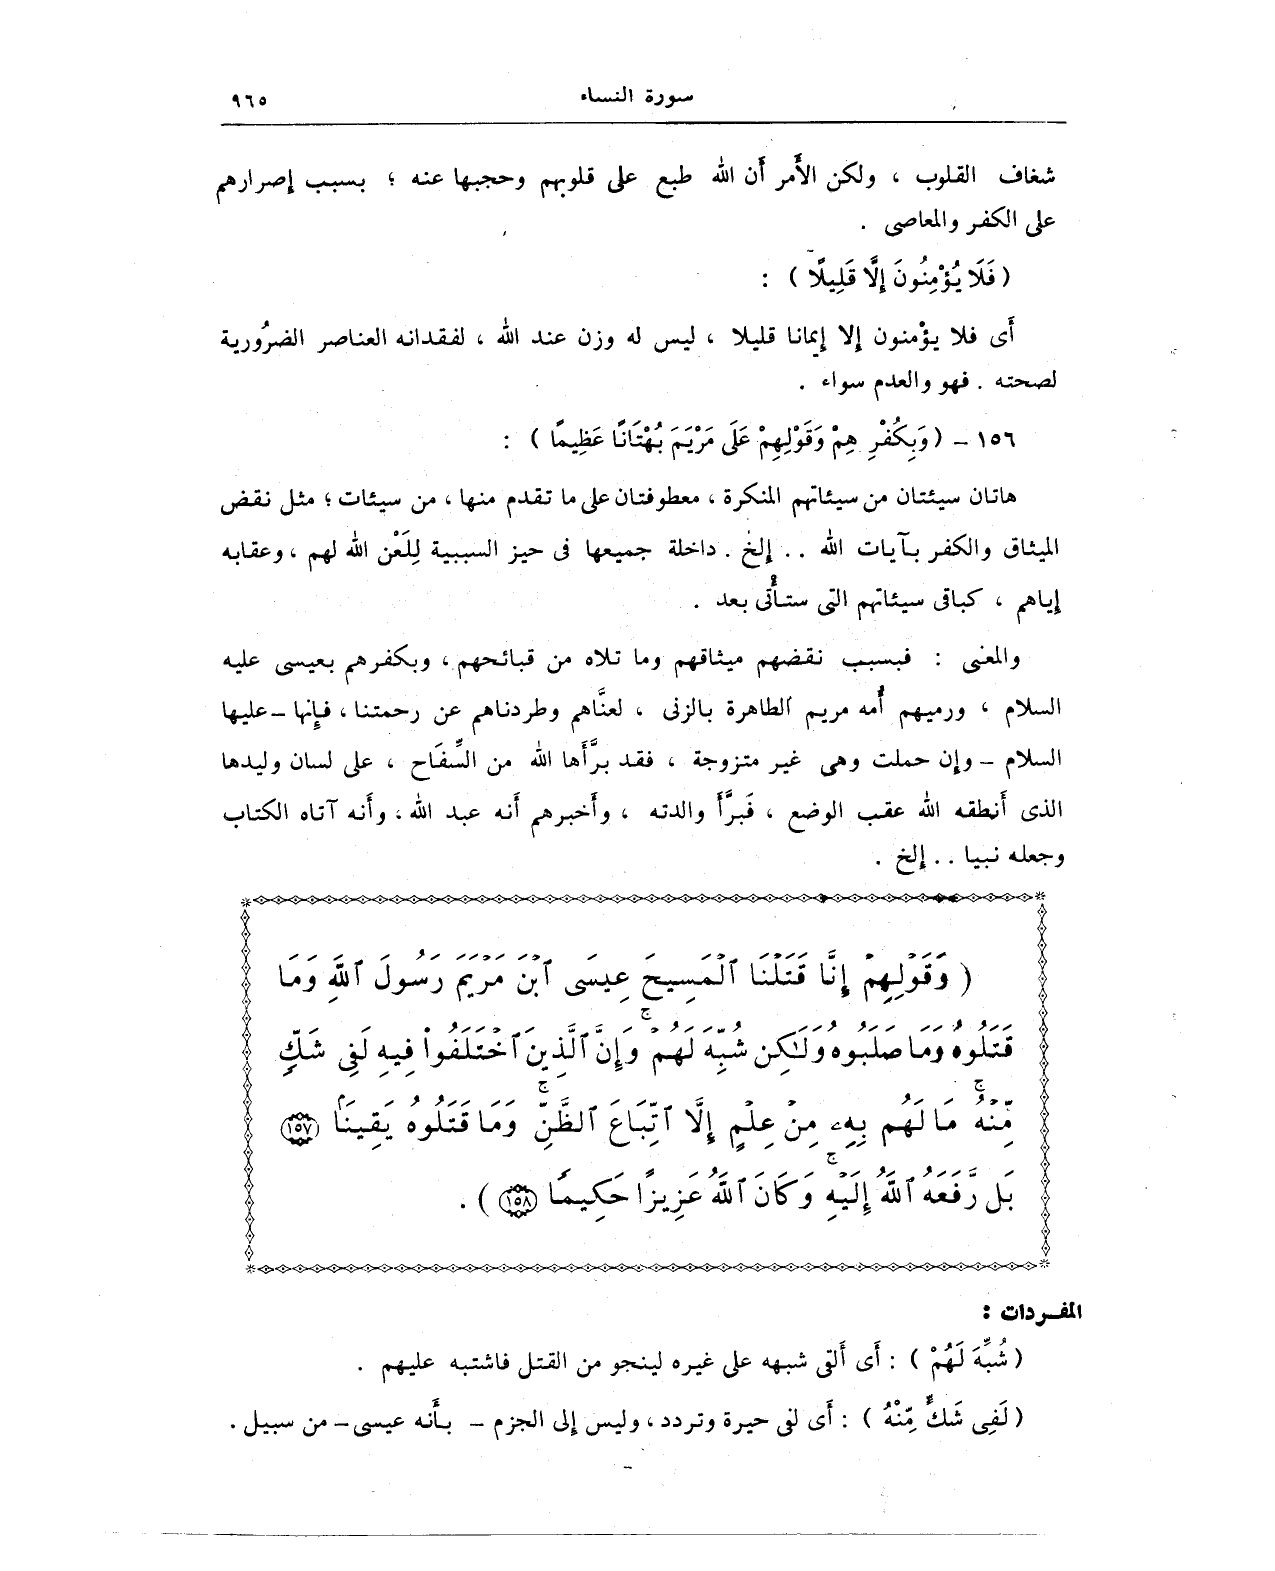 سورة النساء ٩٦٥
شغاف القلوب ، ولكن الأمر أن الله طبع على قلوبهم وحجبها عنه ؛ بسبب إصرارهم
على الكفر والمعاصى .
( فَلَا يُؤْمِنُونَ إِلَّا قَلِيلًا ) :
أى فلا يؤمنون إلا إيمانا قليلا ، ليس له وزن عند الله ، لفقدانه العناصر الضرُورية
لصحته . فهو والعدم سواء .
١٥٦ – ( وَبِكُفْرِهِمْ وَقَوْلِهِمْ عَلَى مَرْيَمَ بُهْتَانًا عَظِيمًا ) :
هاتان سيئتان من سيئاتهم المنكرة ، معطوفتان على ما تقدم منها ، من سيئات ؛ مثل نقض
الميثاق والكفر بآيات الله .. إلخ . داخلة جميعها فى حيز السببية لِلَعْن الله لهم ، وعقابه
إياهم ، كباقى سيئاتهم التى ستأْتى بعد .
والمعنى : فبسبب نقضهم ميثاقهم وما تلاه من قبائحهم ، وبكفرهم بعيسى عليه
السلام ، ورميهم أُمه مريم الطاهرة بالزنى ، لعنَّاهم وطردناهم عن رحمتنا ، فإنها – عليها
السلام – وإن حملت وهى غير متزوجة ، فقد برَّأَها الله من السِّفَاح ، على لسان وليدها
الذى أنطقه الله عقب الوضع ، فَبرَّأَ والدته ، وأخبرهم أنه عبد الله ، وأنه آتاه الكتاب
وجعله نبيا .. إلخ .
( وَقَوْلِهِمْ إِنَّا قَتَلْنَا ٱلْمَسِيحَ عِيسَى ٱبْنَ مَرْيَمَ رَسُولَ ٱللَّهِ وَمَا
قَتَلُوهُ وَمَا صَلَبُوهُ وَلَٰكِن شُبِّهَ لَهُمْ ۚ وَإِنَّ ٱلَّذِينَ ٱخْتَلَفُوا۟ فِيهِ لَفِى شَكٍّ
مِّنْهُ ۚ مَا لَهُم بِهِۦ مِنْ عِلْمٍ إِلَّا ٱتِّبَاعَ ٱلظَّنِّ ۚ وَمَا قَتَلُوهُ يَقِينًۢا ١٥٧
بَل رَّفَعَهُ ٱللَّهُ إِلَيْهِ ۚ وَكَانَ ٱللَّهُ عَزِيزًا حَكِيمًا ١٥٨ ) .
المفردات :
( شُبِّهَ لَهُمْ ) : أى ألقى شبهه على غيره لينجو من القتل فاشتبه عليهم .
( لَفِى شَكٍّ مِّنْهُ ) : أى لفى حيرة وتردد ، وليس إلى الجزم – بأنه عيسى – من سبيل .